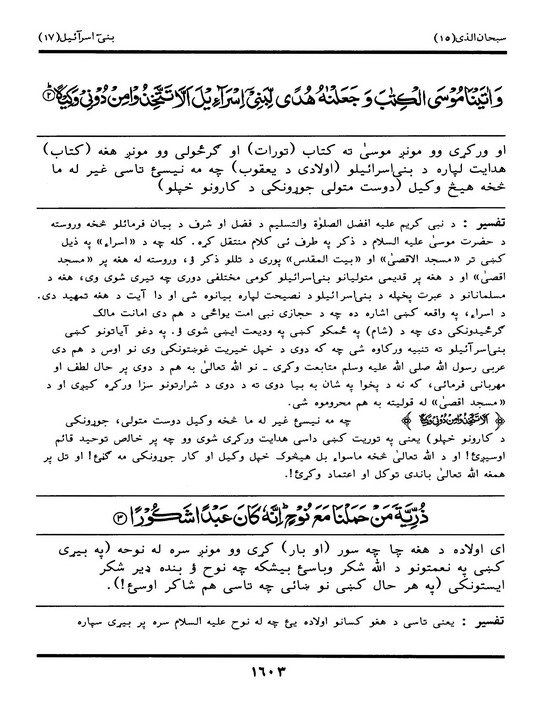 سبحان الذی(۱۵) بنیٓ اسرآئیل(۱۷)
وَاٰتَيْنَا مُوْسَى الْكِتٰبَ وَجَعَلْنٰهُ هُدًى لِّبَنِیْۤ اِسْرَآءِيْلَ اَلَّا تَتَّخِذُوْا مِنْ دُوْنِیْ وَكِيْلًا ۲
او ورکړی وو مونږ موسیٰ ته کتاب (تورات) او ګرځولی وو مونږ هغه (کتاب)
هدایت لپاره د بنی‌اسرائیلو (اولادی د یعقوب) چه مه نیسئ تاسی غیر له ما
څخه هیڅ وکیل (دوست متولی جوړونکی د کارونو خپلو)
تفسیر : د نبی کریم علیه افضل الصلوٰة والتسلیم د فضل او شرف د بیان فرمائلو څخه وروسته
د حضرت موسیٰ علیه السلام د ذکر په طرف ئی کلام منتقل کړ. کله چه د «اسراء» په ذیل
کښی تر «مسجد الاقصیٰ» او «بیت المقدس» پوری د تللو ذکر ؤ، وروسته له هغه پر «مسجد
اقصیٰ» او د هغه پر قدیمی متولیانو بنی‌اسرائیلو کومی مختلفی دوری چه تیری شوی وی، هغه د
مسلمانانو د عبرت پخپله د بنی‌اسرائیلو د نصیحت لپاره بیانوه شی او دا آیت د هغه تمهید دی.
د اسراء، په واقعه کښی اشاره ده چه د حجازی نبی امت یوائځی د هم دی امانت مالک
ګرځیدونکی دی چه د (شام) په ځمکو کښی په ودیعت ایښی شوی ؤ. په دغو آیاتونو کښی
بنی‌اسرآئیلو ته تنبیه ورکاوه شی چه که دوی د خپل خیریت غوښتونکی وی نو اوس د هم دی
عربی رسول الله صلی الله علیه وسلم متابعت وکړی ـ نو الله تعالیٰ به هم د دوی پر حال لطف او
مهربانی فرمائی، که نه د پخوا په شان به بیا دوی ته د دوی د شرارتونو سزا ورکړه کیږی او د
«مسجد اقصیٰ» له قولیته به هم محروموه شی.
﴿اَلَّا تَتَّخِذُوْا مِنْ دُوْنِیْ وَكِيْلًا﴾ چه مه نیسئ غیر له ما څخه وکیل دوست متولی، جوړونکی
د کارونو خپلو) یعنی په توریت کښی داسی هدایت ورکړی شوی وو چه پر خالص توحید قائم
اوسیږئ! او د الله تعالیٰ څخه ماسواء بل هیڅوک خپل وکیل او کار جوړونکی مه ګڼئ! او تل پر
همغه الله تعالیٰ باندی توکل او اعتماد وکړئ!.
ذُرِّيَّةَ مَنْ حَمَلْنَا مَعَ نُوْحٍ اِنَّهٗ كَانَ عَبْدًا شَكُوْرًا ۳
ای اولاده د هغه چا چه سور (او بار) کړی وو مونږ سره له نوحه (په بیړی
کښی په نعمتونو د الله شکر وباسئ بیشکه چه نوح ؤ بنده ډیر شکر
ایستونکی (په هر حال کښی نو ښائی چه تاسی هم شاکر اوسئ!).
تفسیر : یعنی تاسی د هغو کسانو اولاده یئ چه له نوح علیه السلام سره پر بیړی سپاره
۱۶۰۳